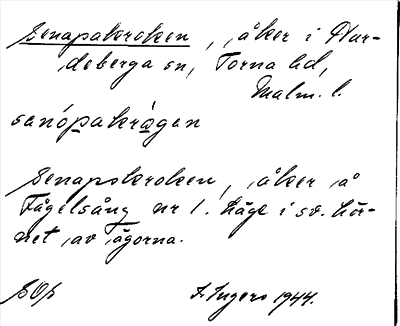 Senapakroken, åker i Har-
deberga sn, Torna hd,
Malm. l.
senópakrågen
Senapskroken, åker å
Fågelsång nr 1. Läge i sv. hör-
net av ägorna.
SOb
F. Ingers 1944.